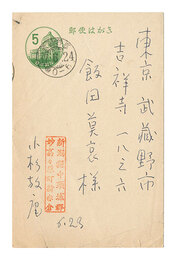 郵便はがき
5
24
東京 武蔵野市
吉祥寺 一八三六
飯田莫哀様
新潟県中頸城郡
妙高々原町
小杉放庵
6.23